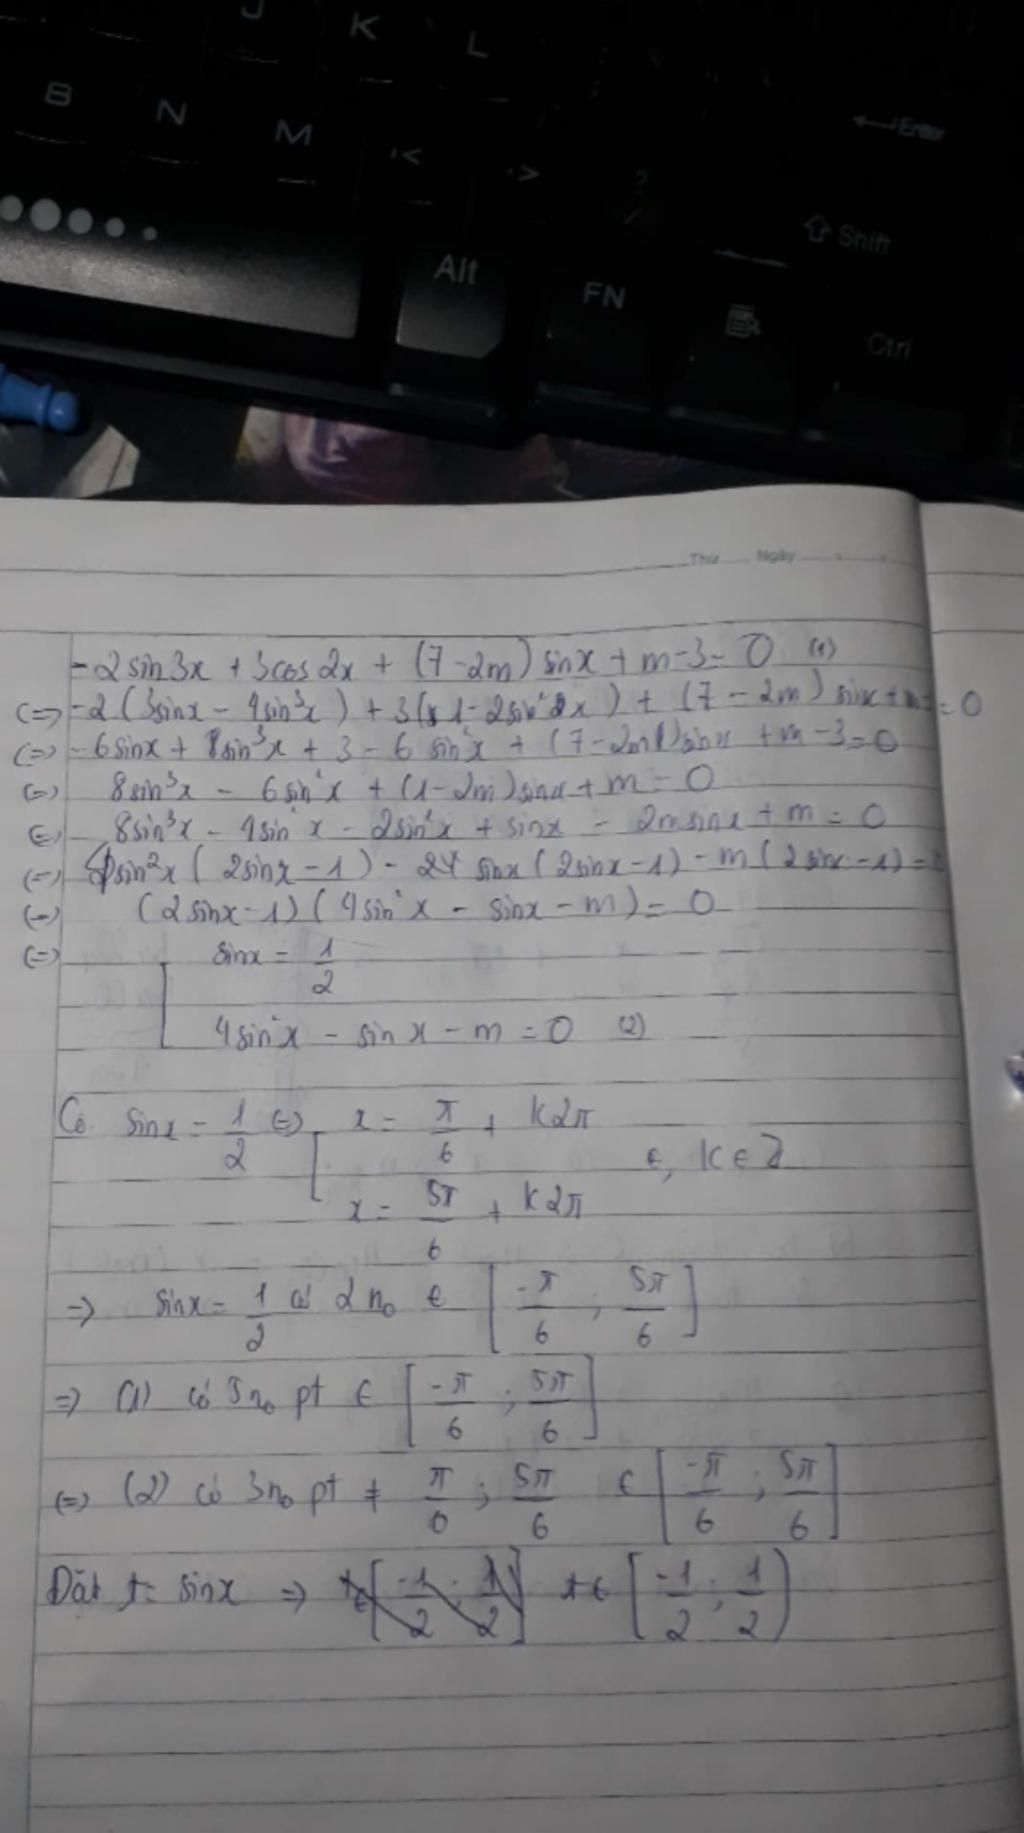 J K L
B N M < > ? Enter
Shift
Alt FN Ctrl
Thứ Ngày
-2sin3x + 3cos2x + (7-2m) sinx + m-3 = 0 (1)
(=) -2(3sinx - 4sin³x) + 3(1-2sin²x) + (7-2m) sinx + m = 0
(=) -6sinx + 8sin³x + 3 - 6sin²x + (7-2m)sinx + m-3=0
(=) 8sin³x - 6sin²x + (1-2m)sinx + m = 0
(=) 8sin³x - 4sin²x - 2sin²x + sinx - 2msinx + m = 0
(=) 4sin²x (2sinx-1) - sinx(2sinx-1) - m(2sinx-1) =
(=) (2sinx-1)(4sin²x - sinx - m) = 0
(=) [ sinx = 1/2
4sin²x - sinx - m = 0 (2)
Có sinx = 1/2 (=) [ x = π/6 + k2π
, k ∈ Z
x = 5π/6 + k2π
=> sinx = 1/2 có 2 n₀ ∈ [-π/6 ; 5π/6]
=> (1) có 5n₀ pt ∈ [-π/6 ; 5π/6]
(=) (2) có 3n₀ pt ≠ π/6 ; 5π/6 ∈ [-π/6 ; 5π/6]
Đặt t = sinx => t ∈ [-1/2 ; 1/2)